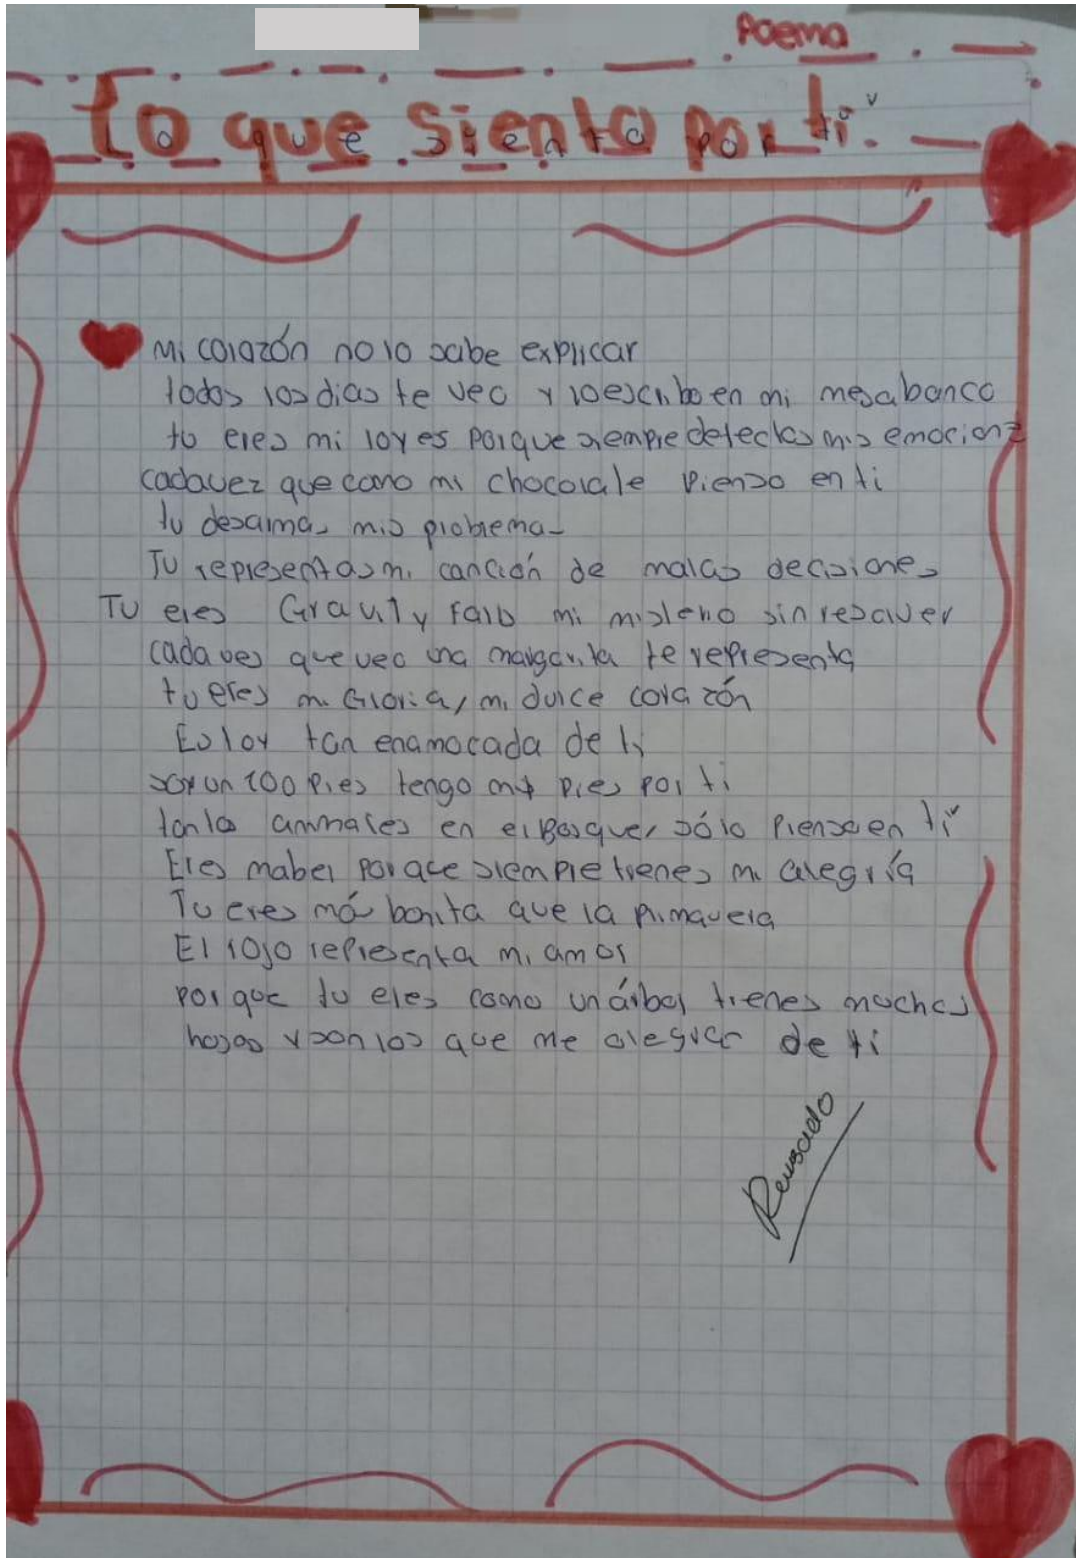 Poema
Lo que siento por ti.
Mi corazón no lo sabe explicar
todos los dias te veo y lo escribo en mi mesabanco
tu eres mi lores porque siempre detectas mis emocione
cadavez que como mi chocolate Pienso en ti
tu desarmas mis problemas
Tu representas mi canción de malas decisiones
Tu eres Gravity Falls mi misterio sin resolver
cada ves que veo una margarita te representa
tu eres mi Gloria, mi dulce corazón
Estoy tan enamorada de ti
soy un 100 Pies tengo mis pies por ti
tanto animales en el Bosque, sólo Piense en ti
Eres mabel porque siempre tienes mi alegría
Tu eres más bonita que la Primavera
El rojo representa mi amor
porque tu eres como un árbol tienes muchas
hojas y son los que me alegrar de ti
Revisado